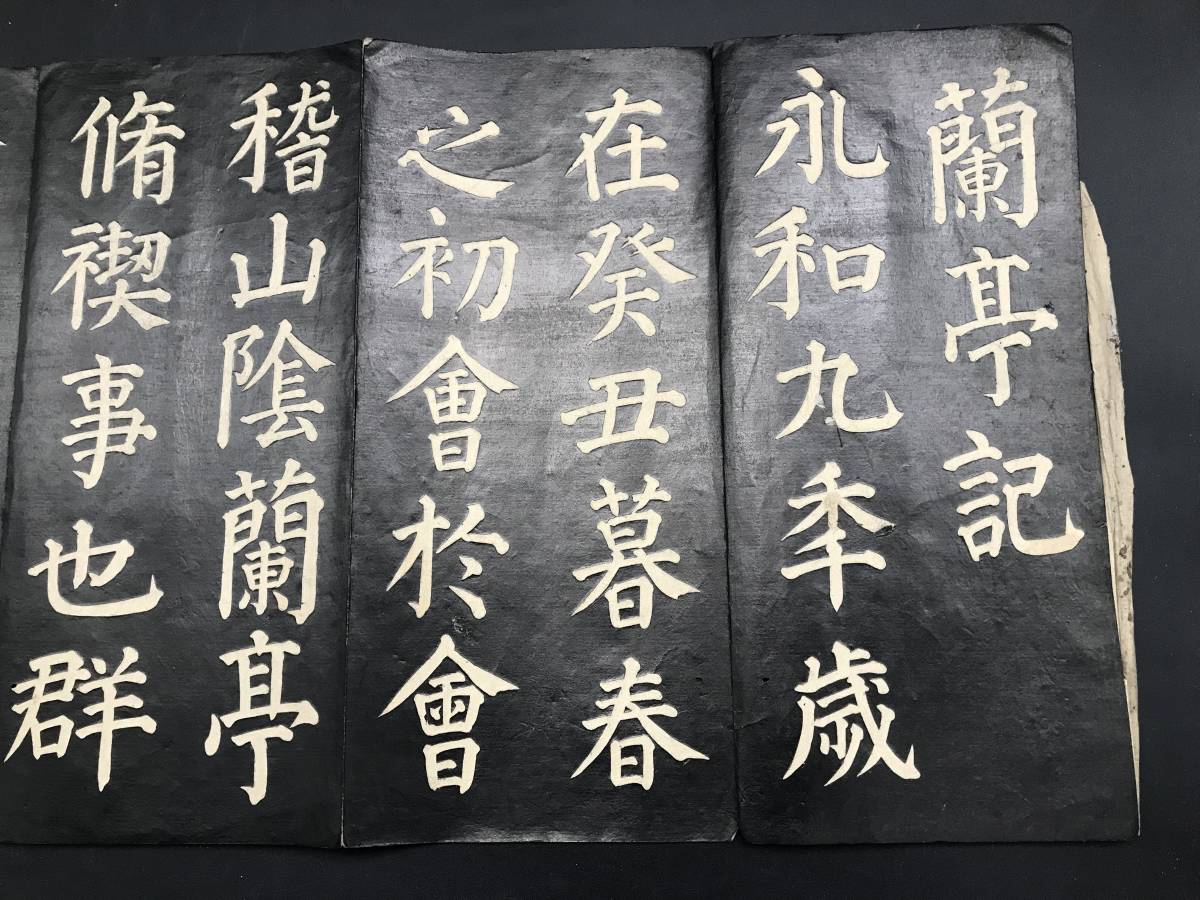 蘭亭記
永和九秊歲
在癸丑暮春
之初會於會
稽山陰蘭亭
脩禊事也群